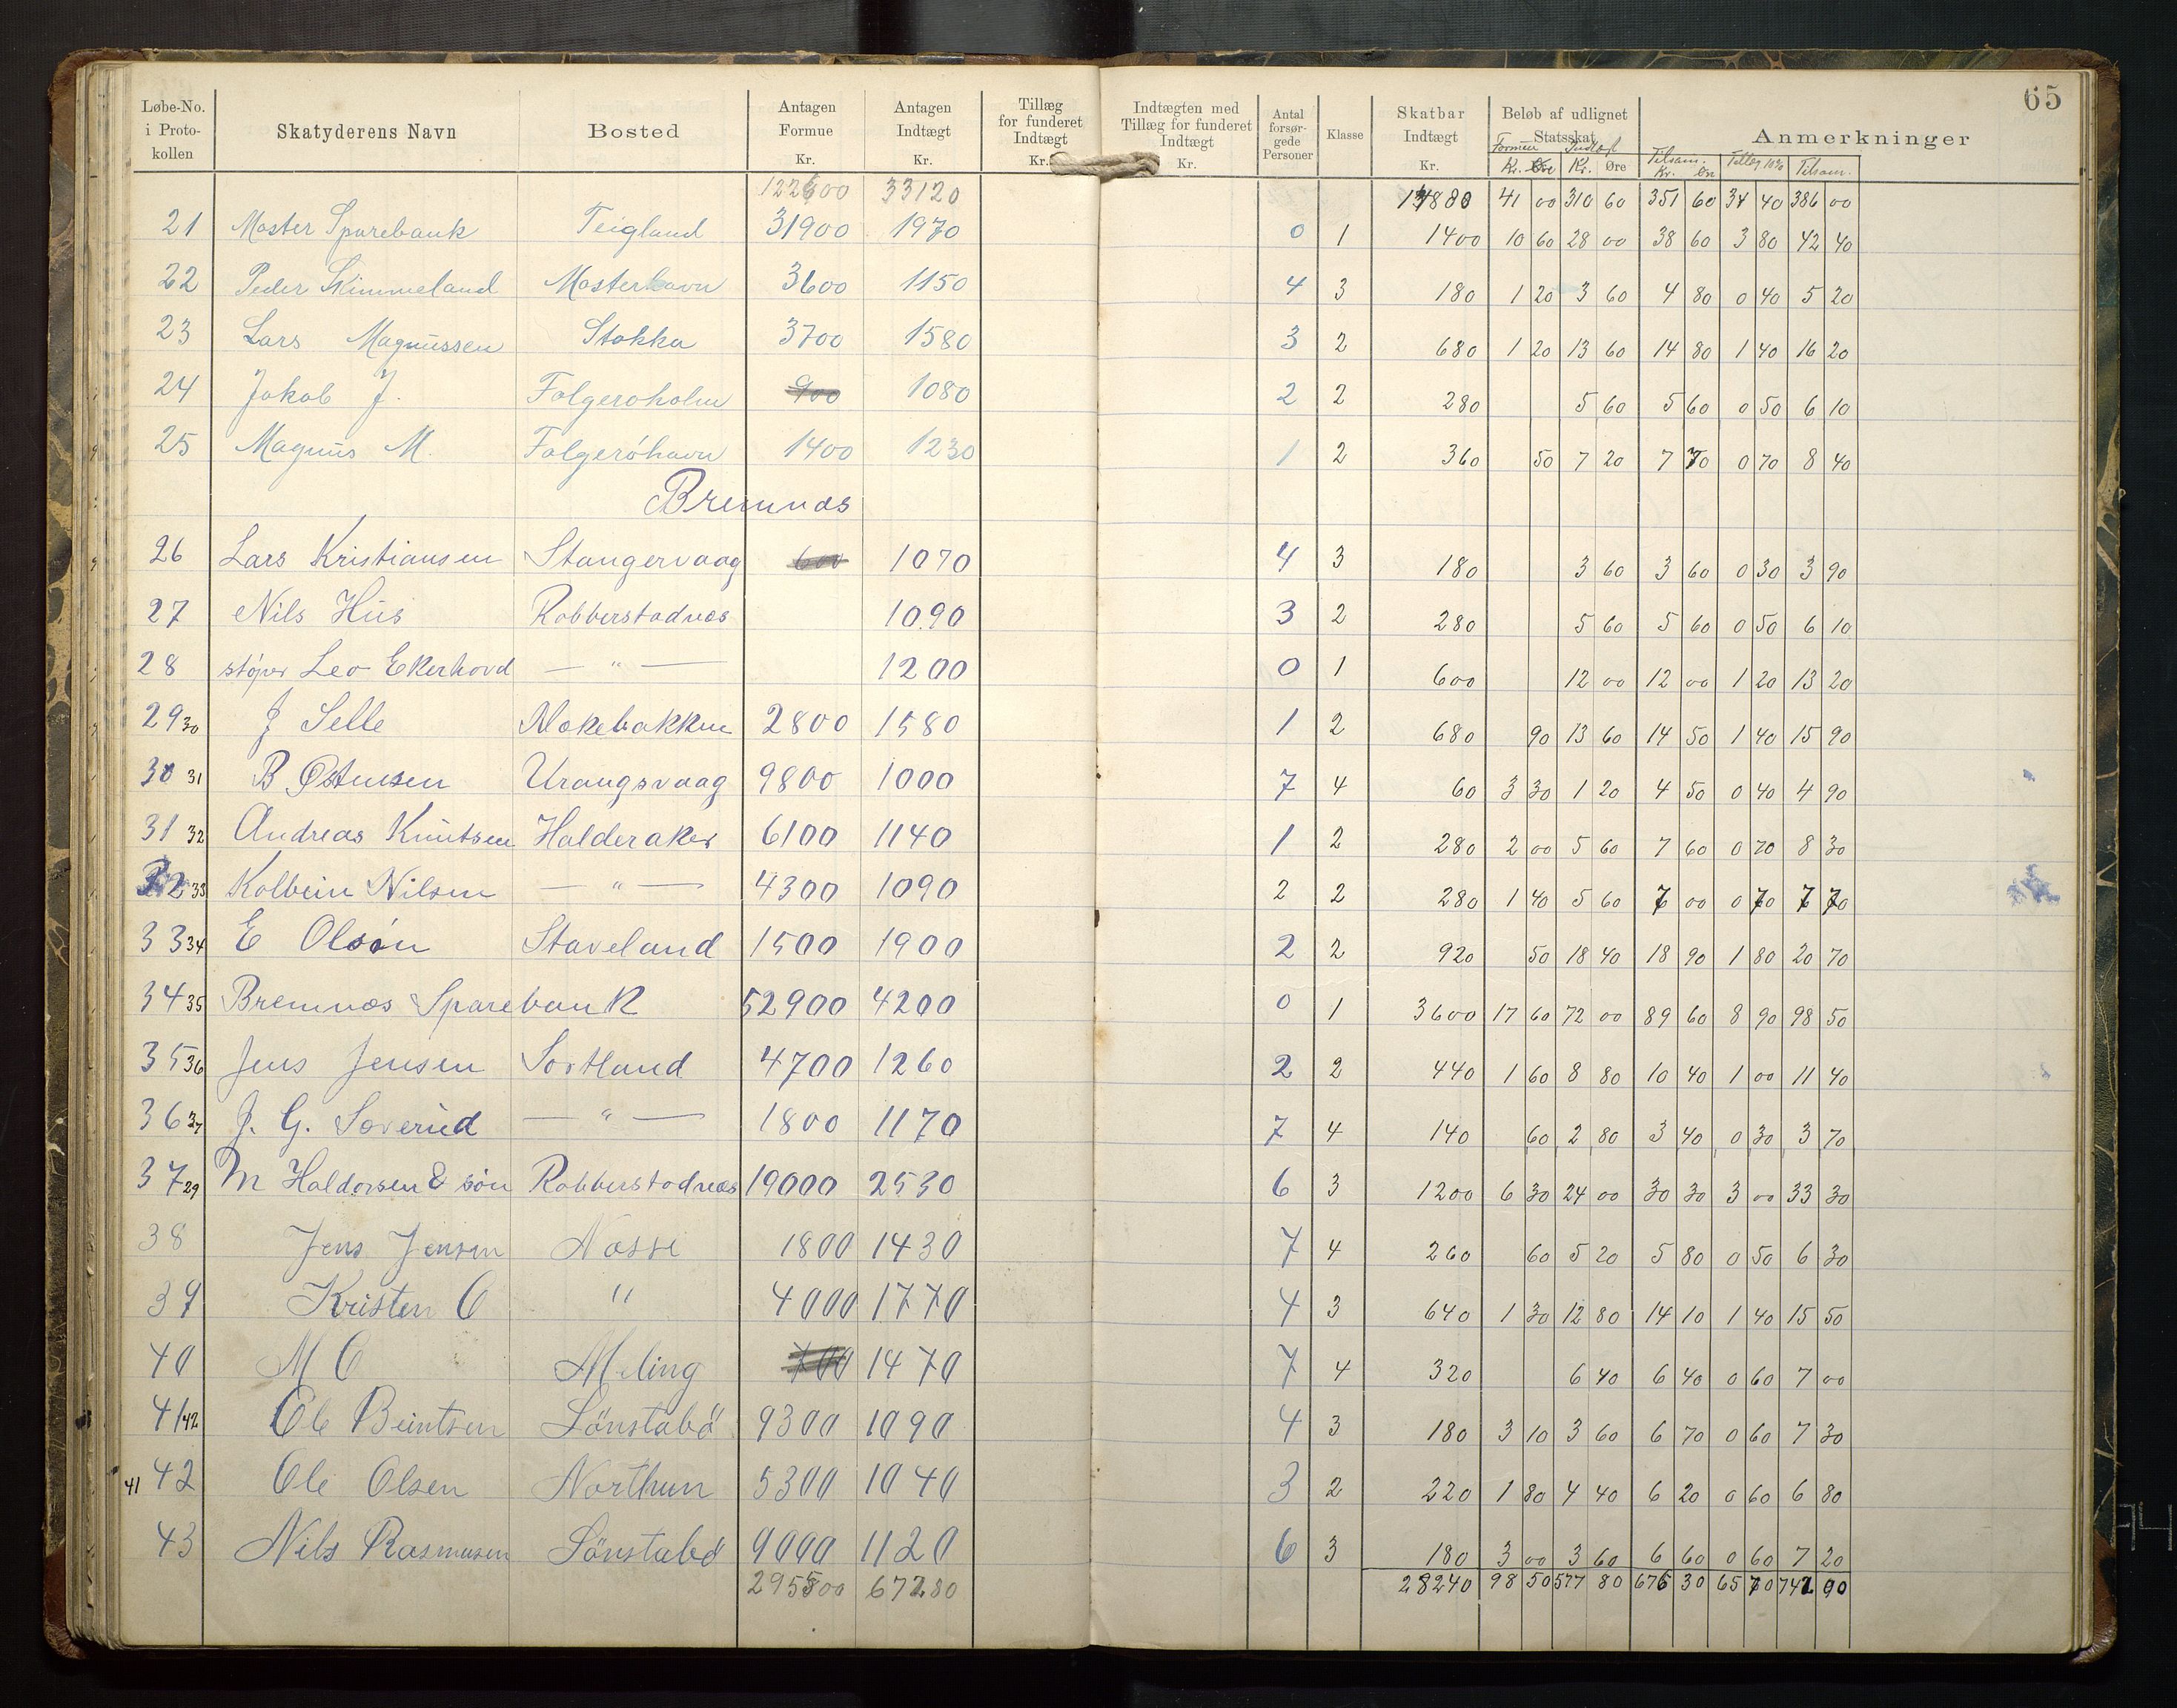 65
Løbe-No. i Proto- kollen | Skatyderens Navn | Bosted | Antagen Formue Kr. | Antagen Indtægt Kr. | Tillæg for funderet Indtægt Kr. | Indtægten med Tillæg for funderet Indtægt Kr. | Antal forsør- gede Personer | Klasse | Skatbar Indtægt Kr. | Beløb af udlignet Statsskat Formue Kr. Øre Indtægt Kr. Øre | Anmerkninger Tilsam. Kr. Øre Tillæg 10% Tilsam.
122600 33120 14880 41 00 310 60 351 60 34 40 386 00
21 Moster Sparebank Teigland 31900 1970 0 1 1400 10 60 28 00 38 60 3 80 42 40
22 Peder Kimmeland Mosterhavn 3600 1150 4 3 180 1 20 3 60 4 80 0 40 5 20
23 Lars Magnussen Stokka 3700 1580 3 2 680 1 20 13 60 14 80 1 40 16 20
24 Jakob J. Folgeroholm 900 1080 2 2 280 5 60 5 60 0 50 6 10
25 Magnus M. Folgeröhavn 1400 1230 1 2 360 50 7 20 7 70 0 70 8 40
Bremnæs
26 Lars Kristiansen Stangervaag 600 1070 4 3 180 3 60 3 60 0 30 3 90
27 Nils Hus Robberstadnæs 1090 3 2 280 5 60 5 60 0 50 6 10
28 støper Leo Ekerhovd — " — 1200 0 1 600 12 00 12 00 1 20 13 20
29 30 J Selle Nokebakken 2800 1580 1 2 680 90 13 60 14 50 1 40 15 90
30 31 B Østensen Urangsvaag 9800 1000 7 4 60 3 30 1 20 4 50 0 40 4 90
31 32 Andreas Knutsen Halderaker 6100 1140 1 2 280 2 00 5 60 7 60 0 70 8 30
32 33 Kolbein Nilsen — " — 4300 1090 2 2 280 1 40 5 60 7 00 0 70 7 70
33 34 E Olsön Staveland 1500 1900 2 2 920 50 18 40 18 90 1 80 20 70
34 35 Bremnæs Sparebank 52900 4200 0 1 3600 17 60 72 00 89 60 8 90 98 50
35 36 Jens Jensen Sortland 4700 1260 2 2 440 1 60 8 80 10 40 1 00 11 40
36 37 J. G. Soverud — " — 1800 1170 7 4 140 60 2 80 3 40 0 30 3 70
37 29 M Haldorsen & søn Robberstadnæs 19000 2530 6 3 1200 6 30 24 00 30 30 3 00 33 30
38 Jens Jensen Nosse 1800 1430 7 4 260 60 5 20 5 80 0 50 6 30
39 Kristen O " 4000 1770 4 3 640 1 30 12 80 14 10 1 40 15 50
40 M O Meling 700 1470 7 4 320 6 40 6 40 0 60 7 00
41 42 Ole Beintsen Sönstabö 9300 1090 4 3 180 3 10 3 60 6 70 0 60 7 30
41 42 Ole Olsen Northun 5300 1040 3 2 220 1 80 4 40 6 20 0 60 6 80
43 Nils Rasmusen Sönstabö 9000 1120 6 3 180 3 00 3 60 6 60 0 60 7 20
295500 67280 28240 98 50 577 80 676 30 65 70 742 00